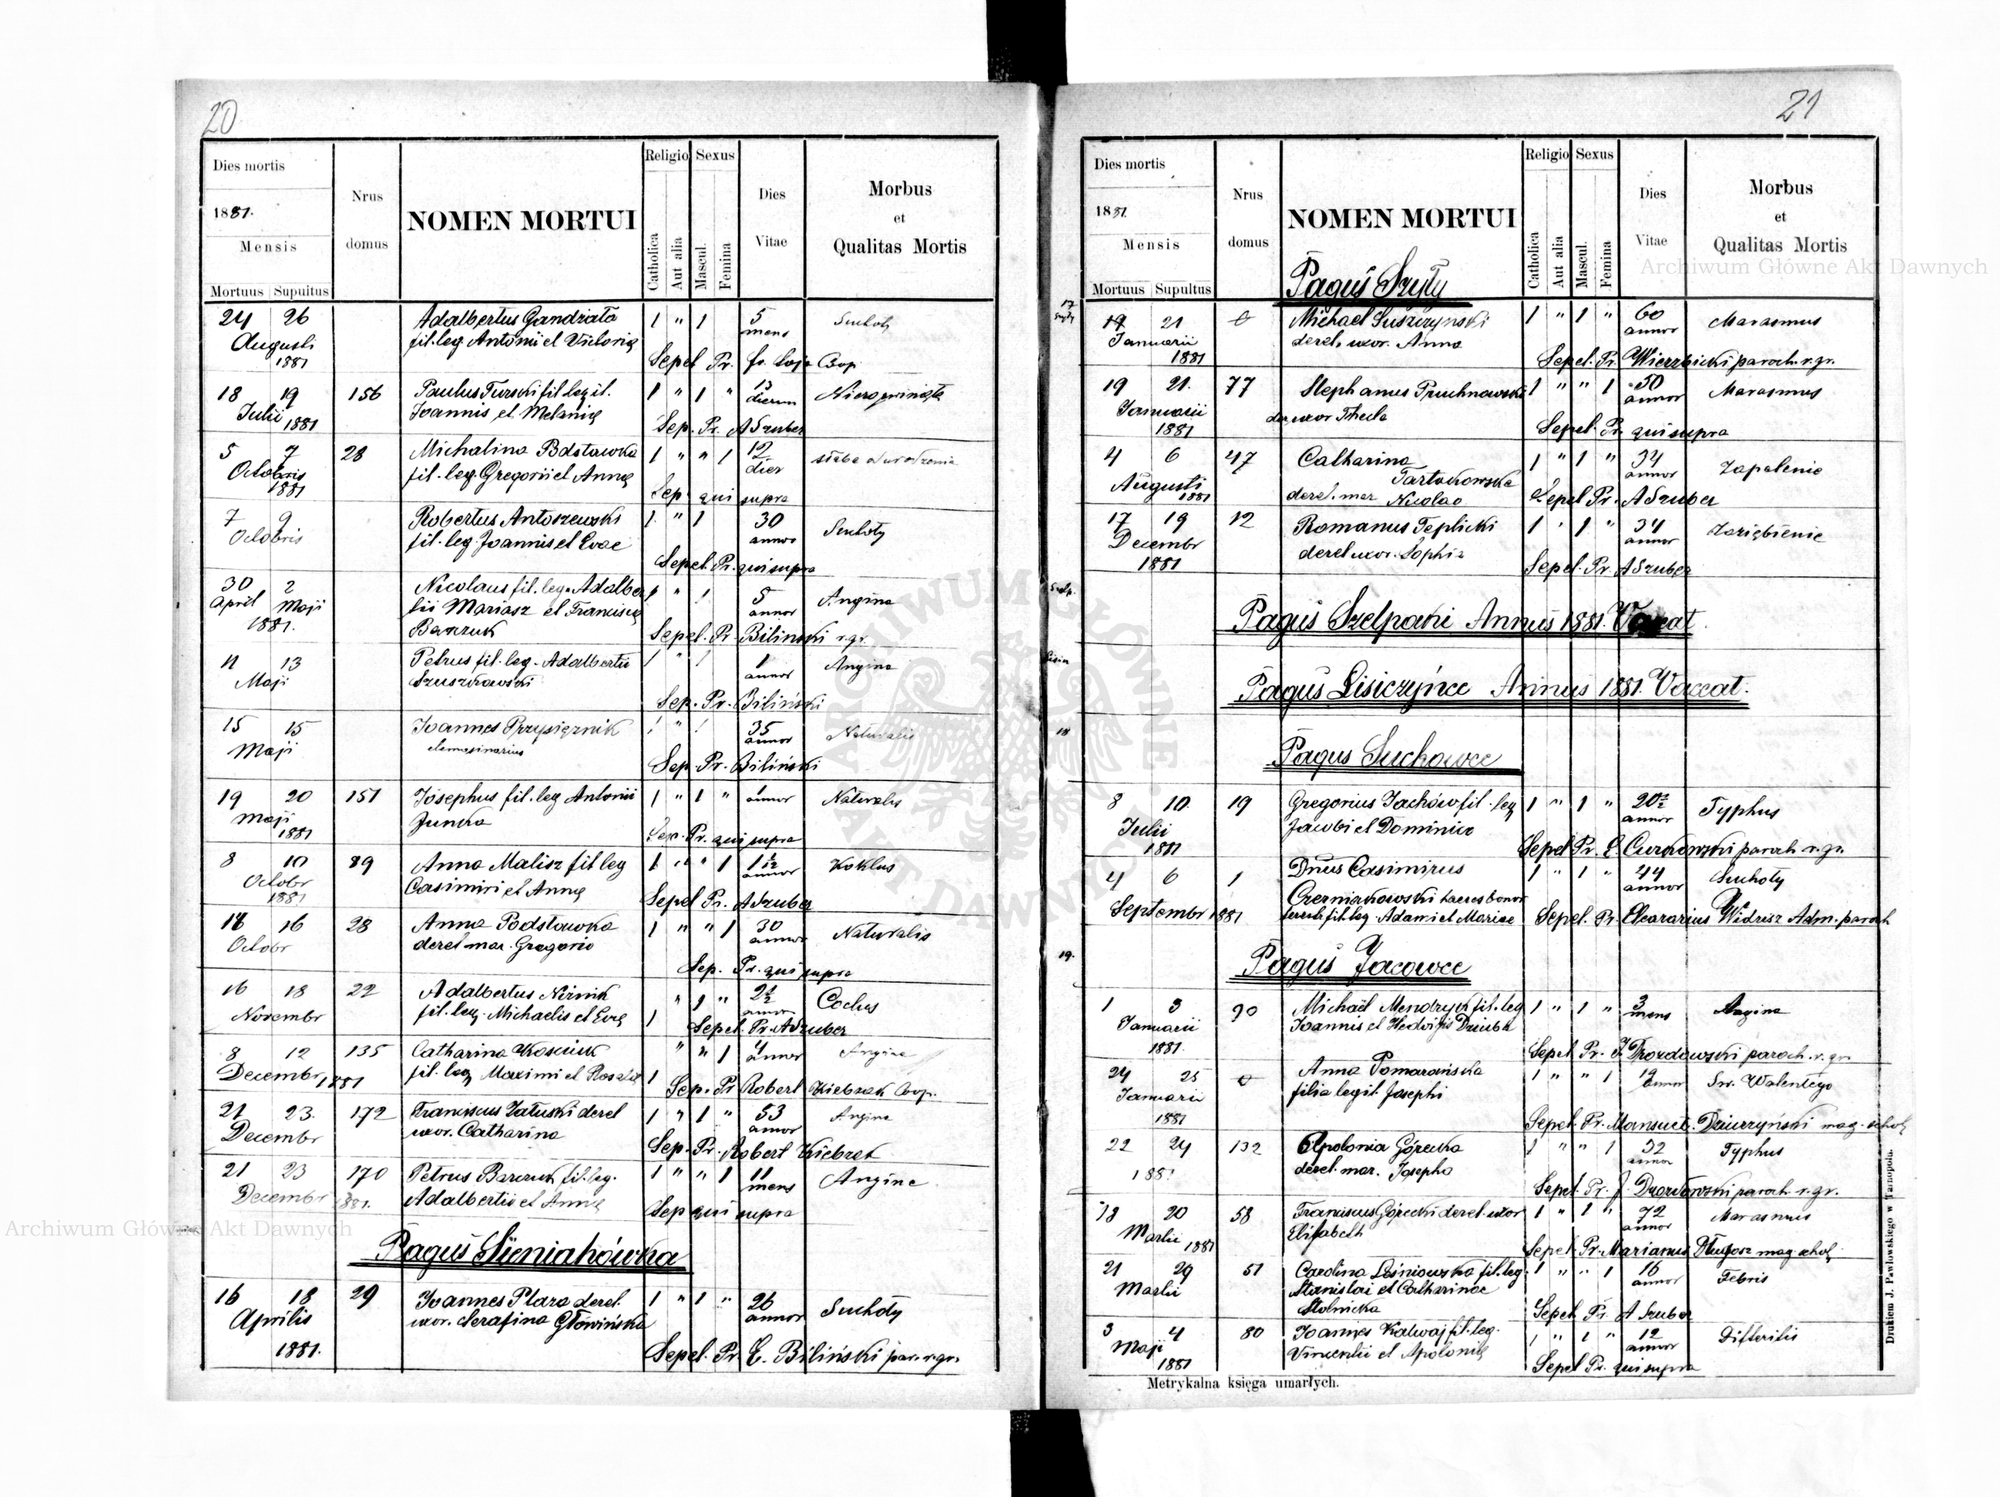 20
Dies mortis
1881.
Mensis
Mortuus Supultus
Nrus
domus
NOMEN MORTUI
Religio
Catholica
Aut alia
Sexus
Mascul.
Femina
Dies
Vitae
Morbus
et
Qualitas Mortis
24 26 Adalbertus Gandziała 1 " 1 5 Suchoty
Augusti fil. leg Antonii et Victorię mens
1881 Sepel Pr. fr. Coop
18 19 156 Paulus Turski fil. legit. 1 " 1 " 13
Julii 1881 Joannis et Melanię dierum
Sep. Pr. A Szuber
5 7 28 Michalina Podstawka 1 " " 1 12
Octobris fil. leg. Gregorii et Annę dier
1881 Sep. qui supra
7 9 Robertus Antoszewski 1 " 1 30 Suchoty
Octobris fil. leg. Joannis et Evae annor
Sepel. Pr. qui supra
30 2 Nicolaus fil. leg. Adalber 1 " 1 5 Angina
April Maji tii Mariasz et Francisca annor
1881. Barczuk Sepel. Pr Biliński r.gr.
11 13 Petrus fil. leg. Adalbertii 1 " 1 1 Angina
Maji annor
Sep. Pr. Biliński
15 15 Joannes Przysiężnik 1 " 1 35 Naturalis
Maji elemosinarius annor
Sep. Pr. Biliński
19 20 151 Josephus fil. leg Antonii 1 " 1 " 1 Naturalis
Maji Juncka annor
1881 Sep. Pr. qui supra
8 10 89 Anna Malisz fil leg 1 " " 1 Koklus
Octobr Casimiri et Annę annor
1881 Sepel Pr. A Szuber
16 28 Anna Podstawka 1 " " 1 30 Naturalis
Octobr derel mar. Gregorio annor
Sep. Pr. qui supra
16 18 22 Adalbertus " 1 " 2 Coclus
Novembr fil. leg. Michaelis et Evę 1 annor
Sepel. Pr. A Szuber
8 12 135 Catharina " " 1 4 Angina
Decembr, 1881 fil. leg Maximi et Rosalię 1 annor
Sep. Pr Robert Coop.
21 23. 172 Franciscus Załuski derel 1 " 1 " 53 Angina
Decembr uxor. Catharina annor
Sep. Pr. Robert
21 23 170 Petrus Barczuk fil. leg. 1 " " 1 11 Angina
Decembr 1881. Adalbertii et Annę mens
Sep qui supra
Pagus Sieniakówka
16 18 29 Joannes Plaza derel. 1 " 1 " 26 Suchoty
Aprilis uxor. Serafina Głowińska annor
1881. Sepel. Pr. E. Biliński par. r.gr.
21
Dies mortis
1881
Mensis
Mortuus Supultus
Nrus
domus
NOMEN MORTUI
Religio
Catholica
Aut alia
Sexus
Mascul.
Femina
Dies
Vitae
Morbus
et
Qualitas Mortis
Pagus Szyły
17
19 21 Michael Suszczynski 1 " 1 " 60 Marasmus
Januarii derel. uxor. Anna annor
1881 Sepel. Pr. Wierzbicki paroch. r. gr.
19 21. 77 Stephanus Pruchnowski 1 " " 1 50 Marasmus
Januarii der uxor Thecla annor
1881 Sepel. Pr. qui supra
4 6 47 Catharina 1 " 1 " 34 Zapalenie
Augusti Tartakowska annor
1881 derel. mar Nicolao Sepel Pr. A Szuber
17 19 12 Romanus Teplicki 1 " 1 " 34 Zaziębienie
Decembr derel uxor. Sophia annor
1881 Sepel. Pr. A Szuber
Pagus Szelpaki Annus 1881. Vacat.
Pagus Lisiczyńce Annus 1881. Vaccat.
18
Pagus Suchowce
8 10. 19 Gregorius Jachów fil. leg 1 " 1 " 20 Typhus
Julii Jacobi et Dominica annor
1881 Sepel Pr. paroch r. gr.
4 6 1 Dnus Casimirus 1 " 1 " 44 Suchoty
Czerniakowski haeres bonor annor
Septembr 1881 fil. leg. Adami et Mariae Sepel. Pr. Eleazarius Adm. paroch
19.
Pagus Jacowce
1 3 90 Michaël Mendryk fil. leg 1 " 1 " 3 Angina
Januarii Joannis et Hedvigis Dziuba mens
1881. Sepel Pr. J. Drozdowski paroch. r. gr.
24 25 Anna Pomarańska 1 " " 1 19 Sw. Walentego
Januarii filia legit. Josephi annor
1881 Sepel. Pr. Mansuet. mag. schol
22 24 132 Apolonia Górecka 1 " " 1 32 Typhus
1881 derel. mar. Josepho annor
Sepel. Pr. J. Drozdowski paroch r. gr.
18 20 58 Franciscus Górecki derel. uxor 1 " 1 " 72 Marasmus
Martii 1881 Elisabeth annor
Sepel. Pr. Marianus Długosz mag. schol.
21 29 51 Carolina Leśniowska fil. leg. 1 " " 1 16 Febris
Martii Stanislai et Catharinae annor
Stolnicka Sepel Pr A Szuber
3 4 80 Joannes Kalwaj fil. leg. 1 " 1 " 12 Difteritis
Maji Vincentii et Apolonię annor
1881 Sepel Pr. qui supra
Metrykalna księga umarłych.
Drukiem J. Pawłowskiego w Tarnopolu.
Archiwum Główne Akt Dawnych
Archiwum Główne Akt Dawnych
ARCHIWUM GŁÓWNE AKT DAWNYCH